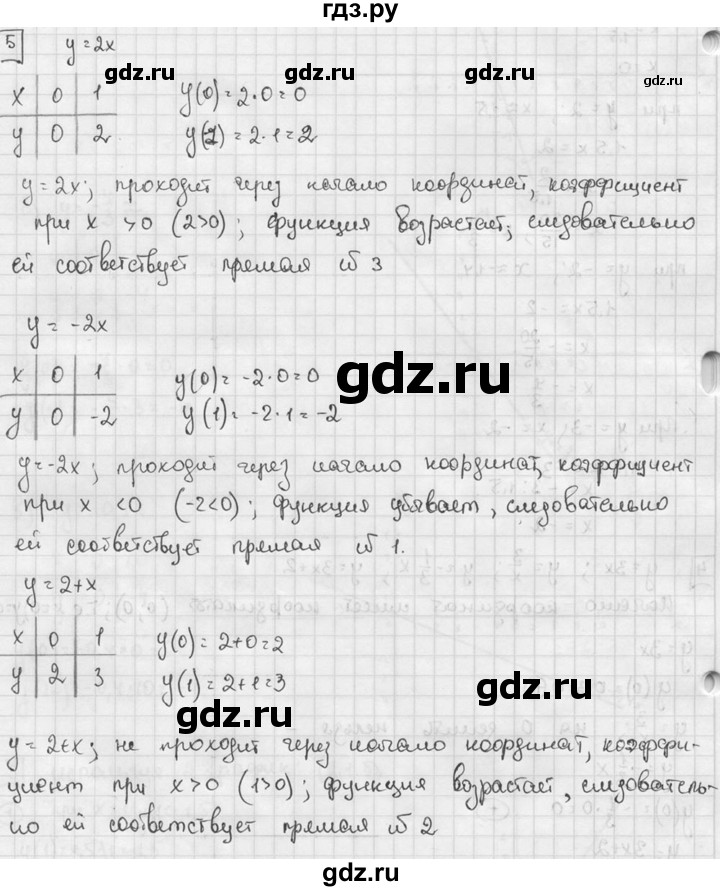 гдз.ру
5 y = 2x
gdz.ru gdz.ru
x 0 1 y(0) = 2·0 = 0
y 0 2 y(1) = 2·1 = 2
gdz.ru gdz.ru
y = 2x; проходит через начало координат, коэффициент
при x >0 (2>0); функция возрастает; следовательно
gdz.ru gdz.ru
ей соответствует прямая № 3
y = -2x
gdz.ru
x 0 1 y(0) = -2·0 = 0
y 0 -2 y(1) = -2·1 = -2
y = -2x; проходит через начало координат, коэффициент
gdz.ru gdz.ru
при x <0 (-2<0); функция убывает, следовательно
ей соответствует прямая № 1.
gdz.ru
y = 2+x
x 0 1 y(0) = 2+0=2
y 2 3 y(1) = 2+1=3
gdz.ru gdz.ru
y = 2+x; не проходит через начало координат, коэффи-
циент при x>0 (1>0); функция возрастает, следователь-
gdz.ru gdz.ru
но ей соответствует прямая № 2
gdz.ru